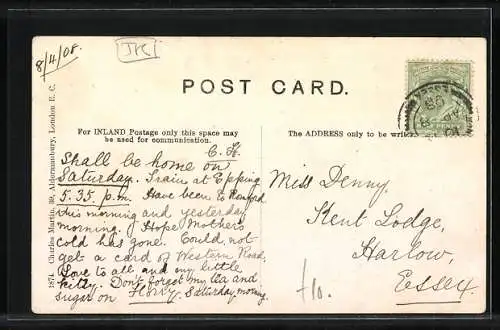 8/4/08.
JK
POST CARD.
For INLAND Postage only this space may
be used for communication.
The ADDRESS only to be writ
1874 Charles Martin, 39, Aldermanbury, London E. C.
C. H.
Shall be home on
Saturday. Train at Epping
5.35 p.m. Have been to Romford
this morning and yesterday
morning. Hope Mothers
cold has gone. Could not
get a card of Western Road;
Love to all and my little
kitty. Dont forget my tea and
sugar on Saturday morning.
Miss Denny.
Kent Lodge,
Harlow,
Essex.